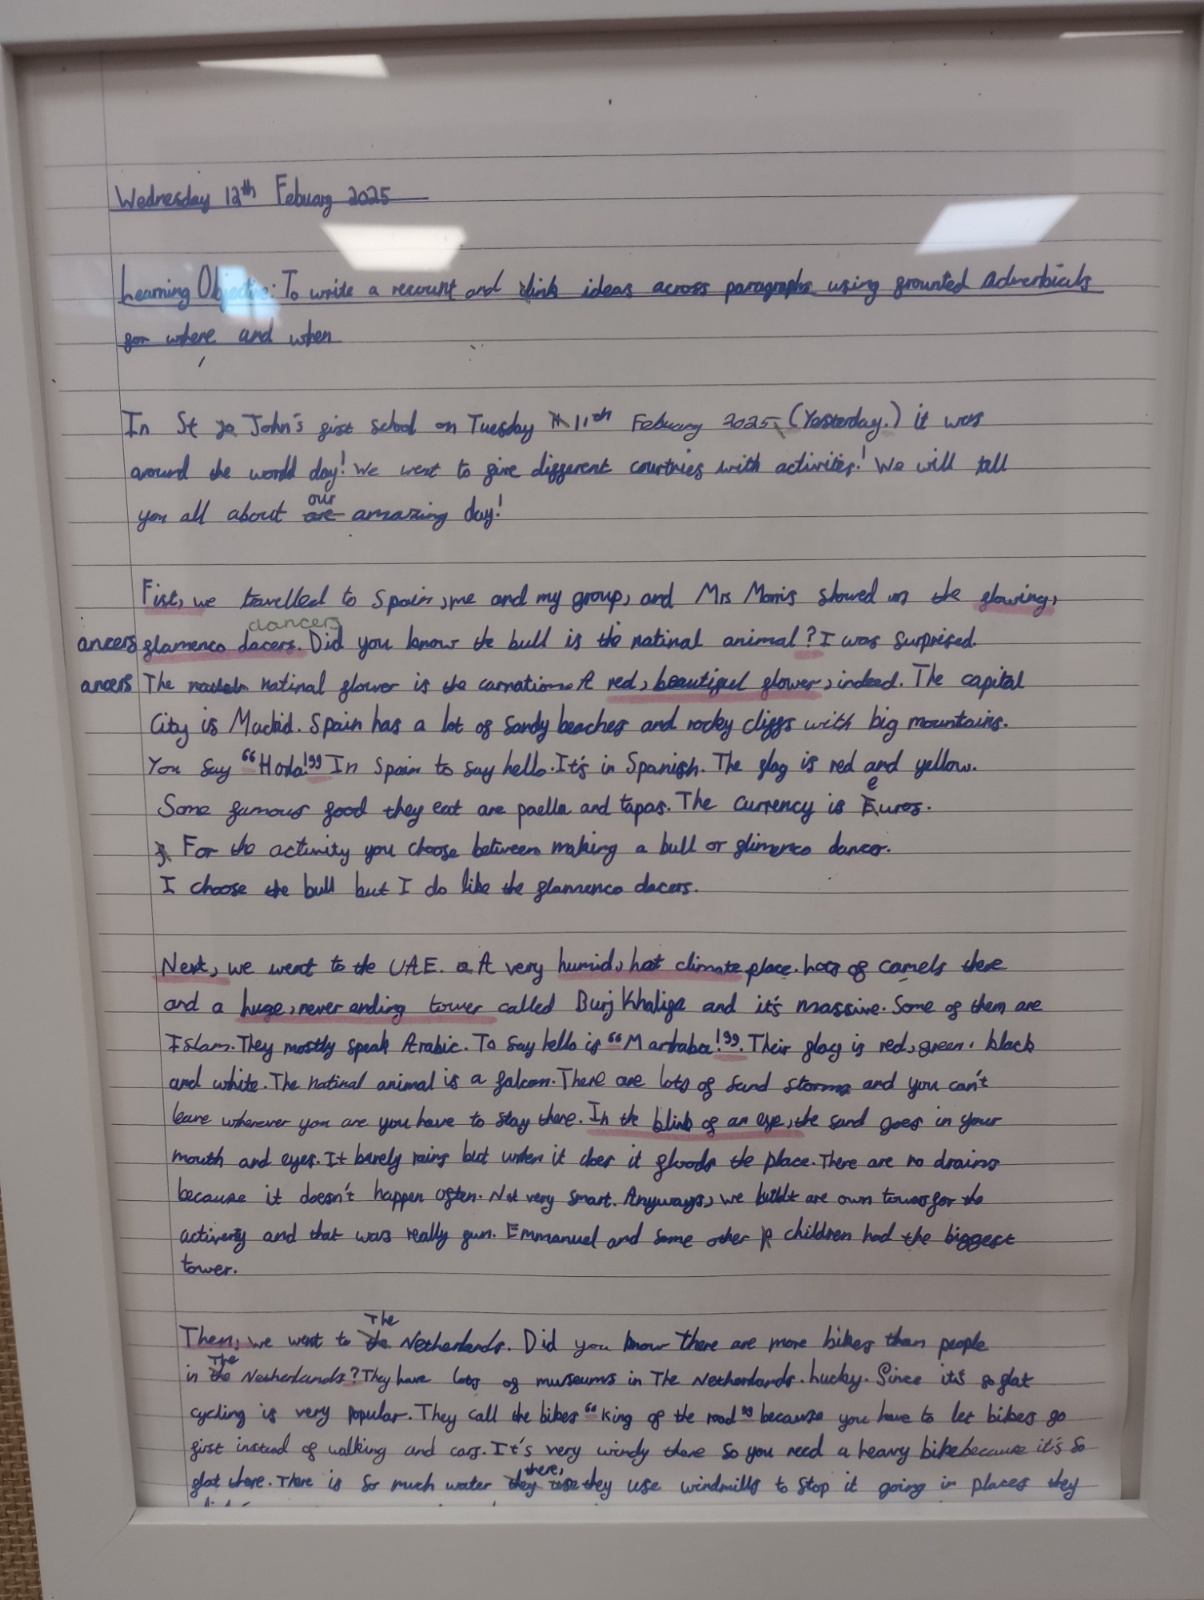 Wednesday 12th Febuary 2025
Learning Objective: To write a recount and link ideas across paragraphs using grounted Adverbials
for where and when
In St jo John's first school on Tuesday 11th Febuary 2025, (Yesterday.) it was
around the world day! We went to five different countries with activities! We will tell
our
you all about are amazing day!
Fist, we travelled to Spain, me and my group, and Mrs Morris showed us the flowing,
dancers
ancers flamenco dacers. Did you know the bull is the natinal animal? I was surprised.
ancers The natinal flower is the carnation. A red, beautiful flower, indeed. The capital
City is Madrid. Spain has a lot of sandy beaches and rocky cliffs with big mountains.
You say "Hola!" In Spain to say hello. It's in Spanish. The flag is red and yellow.
e
Some famous food they eat are paella and tapas. The currency is Euros.
For the activity you choose between making a bull or flimenco dancer.
I choose the bull but I do like the flamenco dacers.
Next, we went to the UAE. A very humid, hot climate place. Lots of camels there
and a huge, never ending tower called Burj Khalifa and it's massive. Some of them are
Islam. They mostly speak Arabic. To say hello is "Marhaba!". Their flag is red, green, black
and white. The natinal animal is a falcon. There are lots of sand storms and you can't
leave wherever you are you have to stay there. In the blink of an eye, the sand goes in your
mouth and eyes. It barely rains but when it does it floods the place. There are no drains
because it doesn't happen often. Not very smart. Anyways, we buildt are own tower for the
activety and that was really fun. Emmanuel and some other children had the biggest
tower.
The
Then, we went to the Netherlands. Did you know there are more bikes than people
The
in the Netherlands? They have lots of museums in The Netherlands. Lucky. Since it's so flat
cycling is very popular. They call the bikes "king of the road" because you have to let bikes go
first instead of walking and cars. It's very windy there so you need a heavy bike because it's so
there,
flat there. There is so much water they use they use windmills to stop it going in places they